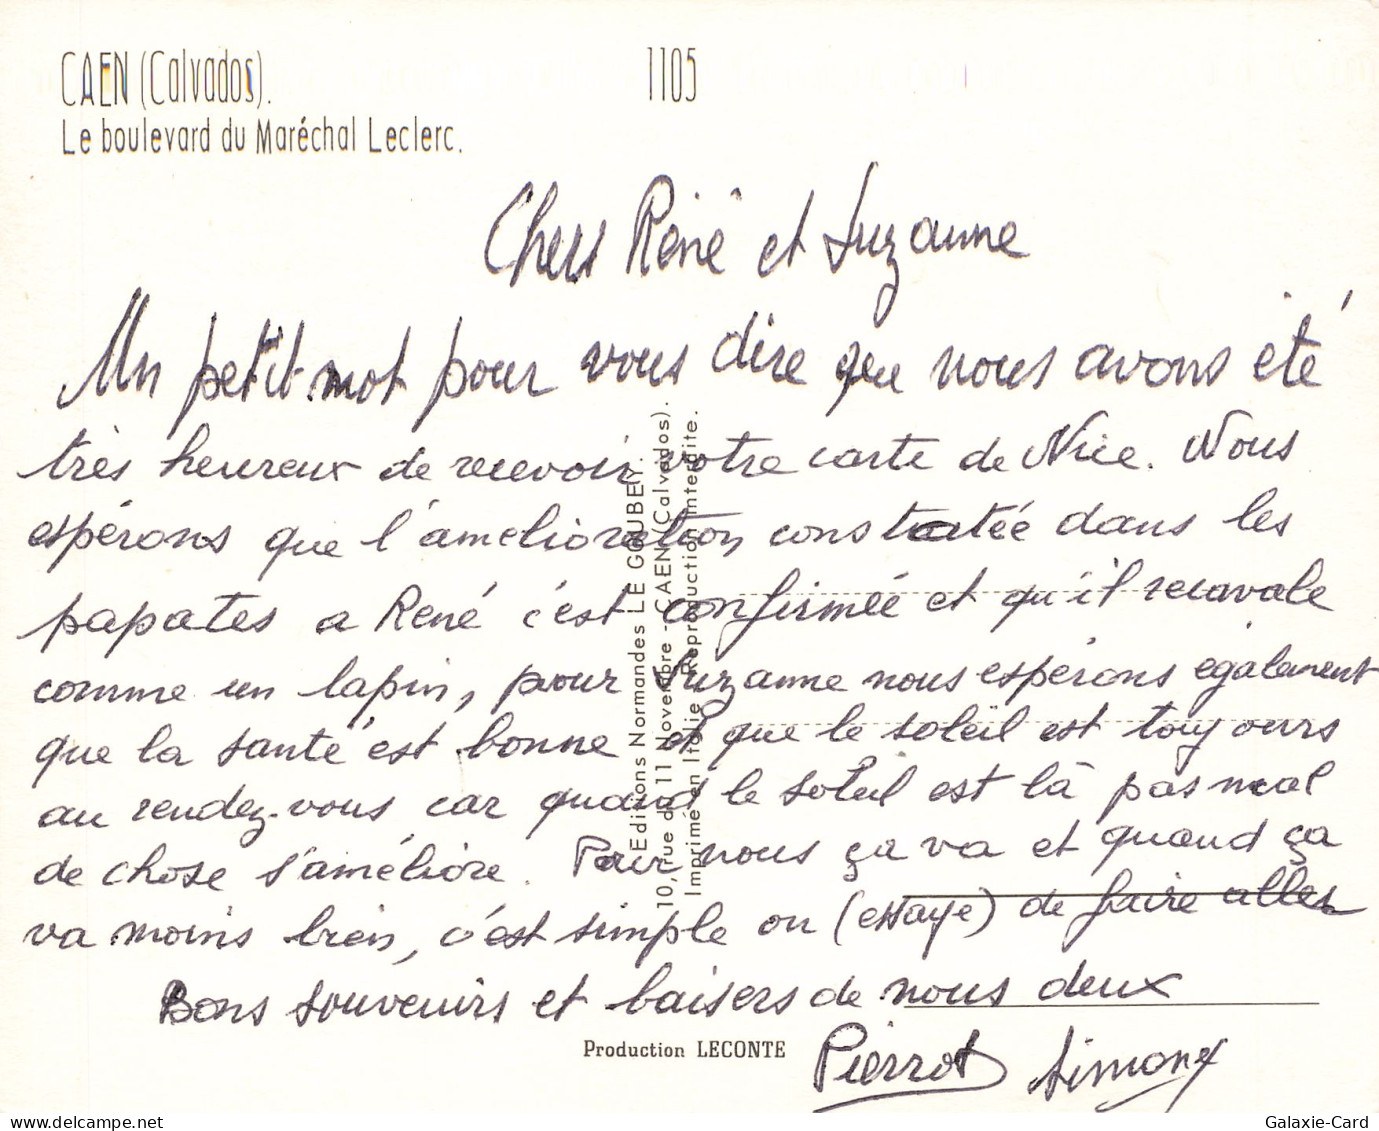 CAEN (Calvados).
1105
Le boulevard du Maréchal Leclerc.
Chers René et Suzanne
Un petit mot pour vous dire que nous avons été
très heureux de recevoir votre carte de Nice. Nous
espérons que l'amelioration constatée dans les
papates a René c'est confirmée et qu'il recavale
comme un lapin, pour Suzanne nous espérons également
que la santé est bonne et que le soleil est toujours
au rendez-vous car quand le soleil est là pas mal
de chose s'améliore. Pour nous ça va et quand ça
va moins bien, c'est simple on (essaye) de faire aller
Bons souvenirs et baisers de nous deux
Pierrot Simone
Editions Normandes LE GOUBEY.
10, rue du 11 Novembre - CAEN (Calvados).
Imprimé en Italie - Reproduction interdite.
Production LECONTE
Galaxie-Card